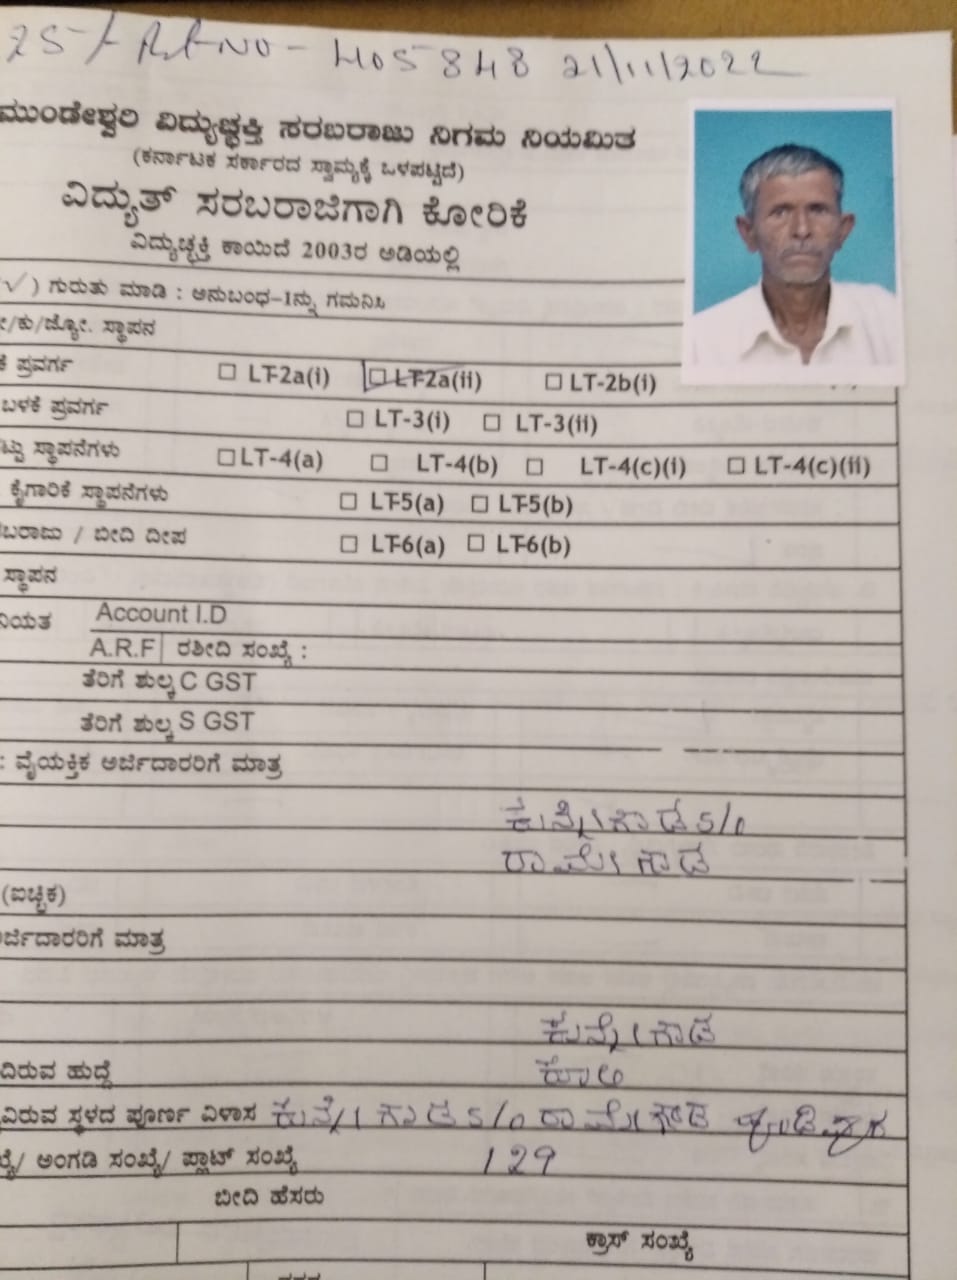 No - 405848 21/11/2022
ಮುಂಡೇಶ್ವರಿ ವಿದ್ಯುಚ್ಛಕ್ತಿ ಸರಬರಾಜು ನಿಗಮ ನಿಯಮಿತ
(ಕರ್ನಾಟಕ ಸರ್ಕಾರದ ಸ್ವಾಮ್ಯಕ್ಕೆ ಒಳಪಟ್ಟಿದೆ)
ವಿದ್ಯುತ್ ಸರಬರಾಜಿಗಾಗಿ ಕೋರಿಕೆ
ವಿದ್ಯುಚ್ಛಕ್ತಿ ಕಾಯಿದೆ 2003ರ ಅಡಿಯಲ್ಲಿ
✓) ಗುರುತು ಮಾಡಿ : ಅನುಬಂಧ-1ನ್ನು ಗಮನಿಸಿ
/ಕು/ಜ್ಯೋ. ಸ್ಥಾಪನ
ಕೆ ಪ್ರವರ್ಗ □ LT-2a(i) □ LT-2a(ii) □ LT-2b(i)
ಬಳಕೆ ಪ್ರವರ್ಗ □ LT-3(i) □ LT-3(ii)
ಸ್ಥಾಪನೆಗಳು □ LT-4(a) □ LT-4(b) □ LT-4(c)(i) □ LT-4(c)(ii)
ಕೈಗಾರಿಕೆ ಸ್ಥಾಪನೆಗಳು □ LT-5(a) □ LT-5(b)
ಬರಾಜು / ಬೀದಿ ದೀಪ □ LT-6(a) □ LT-6(b)
ಸ್ಥಾಪನ
ನಿಯತ Account I.D
A.R.F ರಶೀದಿ ಸಂಖ್ಯೆ :
ತೆರಿಗೆ ಶುಲ್ಕ C GST
ತೆರಿಗೆ ಶುಲ್ಕ S GST
: ವೈಯಕ್ತಿಕ ಅರ್ಜಿದಾರರಿಗೆ ಮಾತ್ರ
ಕುನ್ನೇಗೌಡ S/o
ರಾಮೇಗೌಡ
(ಐಚ್ಛಿಕ)
ರ್ಜಿದಾರರಿಗೆ ಮಾತ್ರ
ಕುನ್ನೇಗೌಡ
ದಿರುವ ಹುದ್ದೆ ಕೂಲಿ
ವಿರುವ ಸ್ಥಳದ ಪೂರ್ಣ ವಿಳಾಸ ಕುನ್ನೇಗೌಡ S/o ರಾಮೇಗೌಡ
ಖ್ಯೆ/ ಅಂಗಡಿ ಸಂಖ್ಯೆ/ ಪ್ಲಾಟ್ ಸಂಖ್ಯೆ 129
ಬೀದಿ ಹೆಸರು
ಕ್ರಾಸ್ ಸಂಖ್ಯೆ